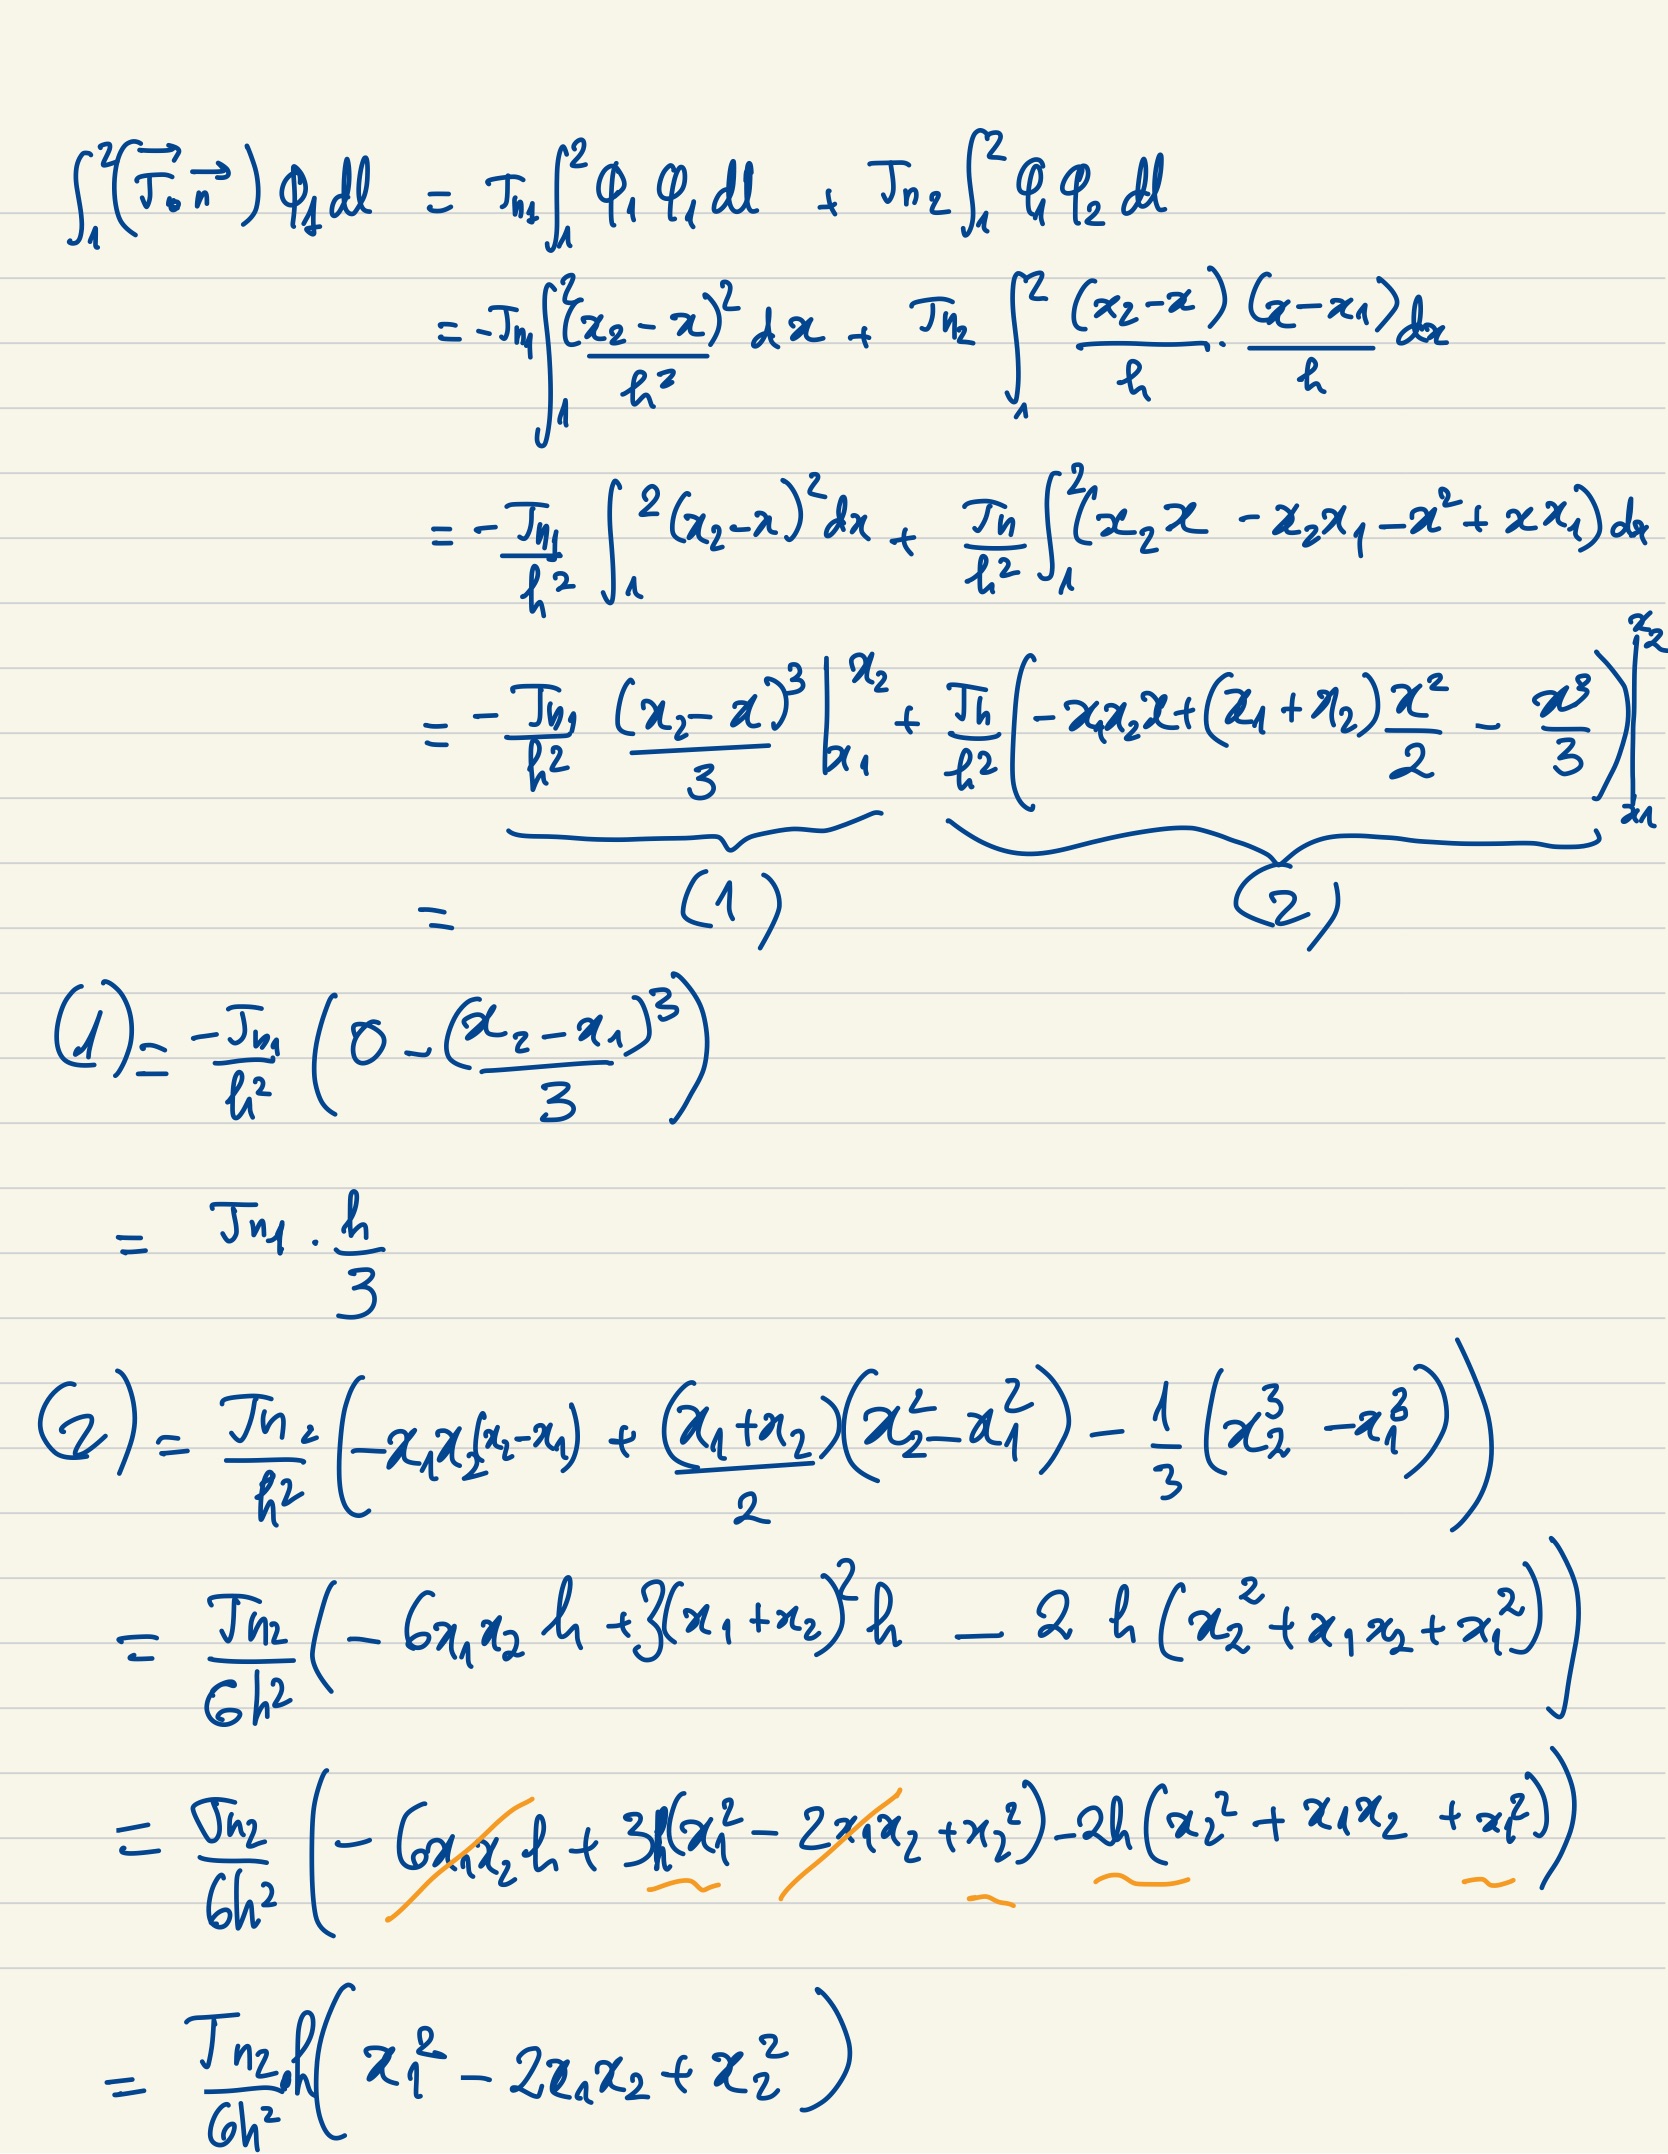 ∫₁² (J⃗·n⃗) φ₁ dl = Jn₁ ∫₁² φ₁ φ₁ dl + Jn₂ ∫₁² φ₁ φ₂ dl
= -Jn₁ ∫₁² (x₂-x)²/h² dx + Jn₂ ∫₁² (x₂-x)/h · (x-x₁)/h dx
= -Jn₁/h² ∫₁² (x₂-x)² dx + Jn/h² ∫₁² (x₂x - x₂x₁ - x² + xx₁) dx
= -Jn₁/h² (x₂-x)³/3 |_{x₁}^{x₂} + Jn/h² (-x₁x₂x + (x₁+x₂) x²/2 - x³/3) |_{x₁}^{x₂}
= (1) (2)
(1) = -Jn₁/h² (0 - (x₂-x₁)³/3)
= Jn₁ · h/3
(2) = Jn₂/h² (-x₁x₂(x₂-x₁) + (x₁+x₂)/2 (x₂²-x₁²) - 1/3 (x₂³-x₁³))
= Jn₂/6h² (-6x₁x₂ h + 3(x₁+x₂)² h - 2 h (x₂²+x₁x₂+x₁²))
= Jn₂/6h² (-6x₁x₂h + 3h(x₁² - 2x₁x₂ + x₂²) - 2h (x₂² + x₁x₂ + x₁²))
= Jn₂/6h² · h (x₁² - 2x₁x₂ + x₂²)